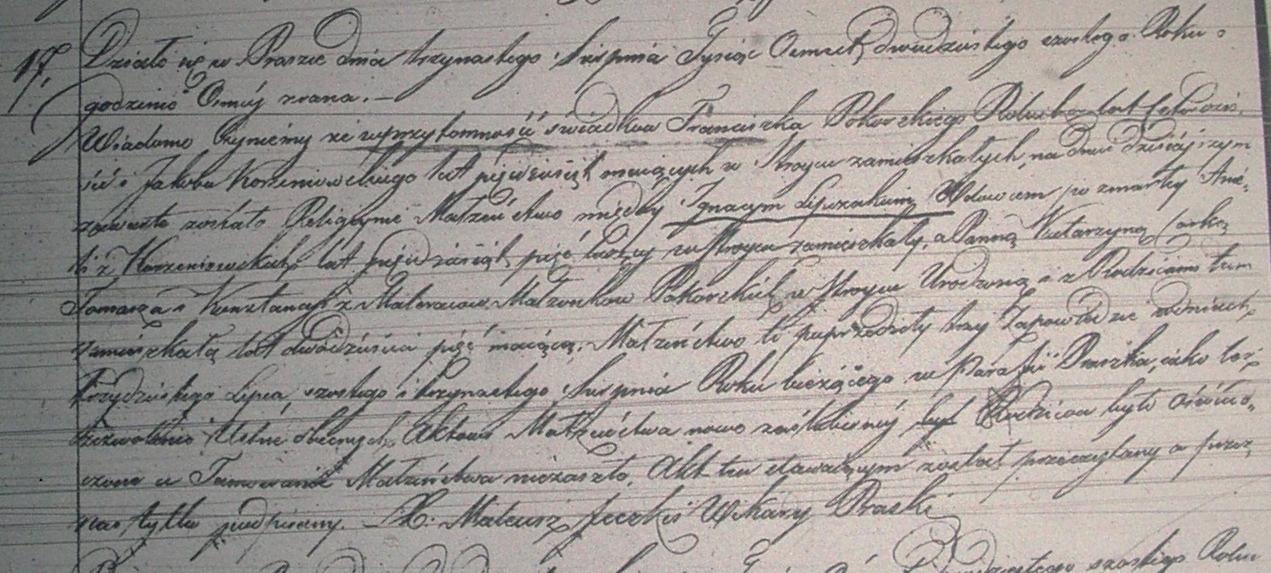 17. Działo się w Praszce dnia trzynastego Sierpnia Tysiąc Ośmset dwudziestego szostego Roku o
godzinie Osmey zrana. —
Wiadomo Czyniemy że w przytomności świadkow Franciszka Pokorskiego Rolnika lat czterdzie-
ści i Jakoba Korzeniowskiego lat pięćdziesiąt maiących w Stroycu zamieszkałych, na dniu dzisieyszym
zawarte zostało Religiyne Małżeństwo między Ignacym Wdowcem po zmarłey Anie-
li z Korzeniowskich, lat pięćdziesiąt pięć liczący w Stroycu zamieszkały, a Panną Katarzyną corką
Tomasza i Konstancyi z Małżonkow Pokorskich w Stroycu Urodzoną i z Rodzicami tam
zamieszkałą lat dwadzieścia pięć maiącą. Małżeństwo to poprzedziły trzy Zapowiedzie w dniach
trzydziestego Lipca, szostego i trzynastego Sierpnia Roku bieżącego w Parafii Praszka, iako też
zezwolenie Ustne obecnych Aktowi Małżeństwa nowo zaślubioney Rodzicow było oświad-
czone a Tamowanie Małżeństwa niezaszło, Akt ten stawaiącym został przeczytany a przez
nas tylko podpisany. — X. Mateusz Wikary Praski
szostego Roku